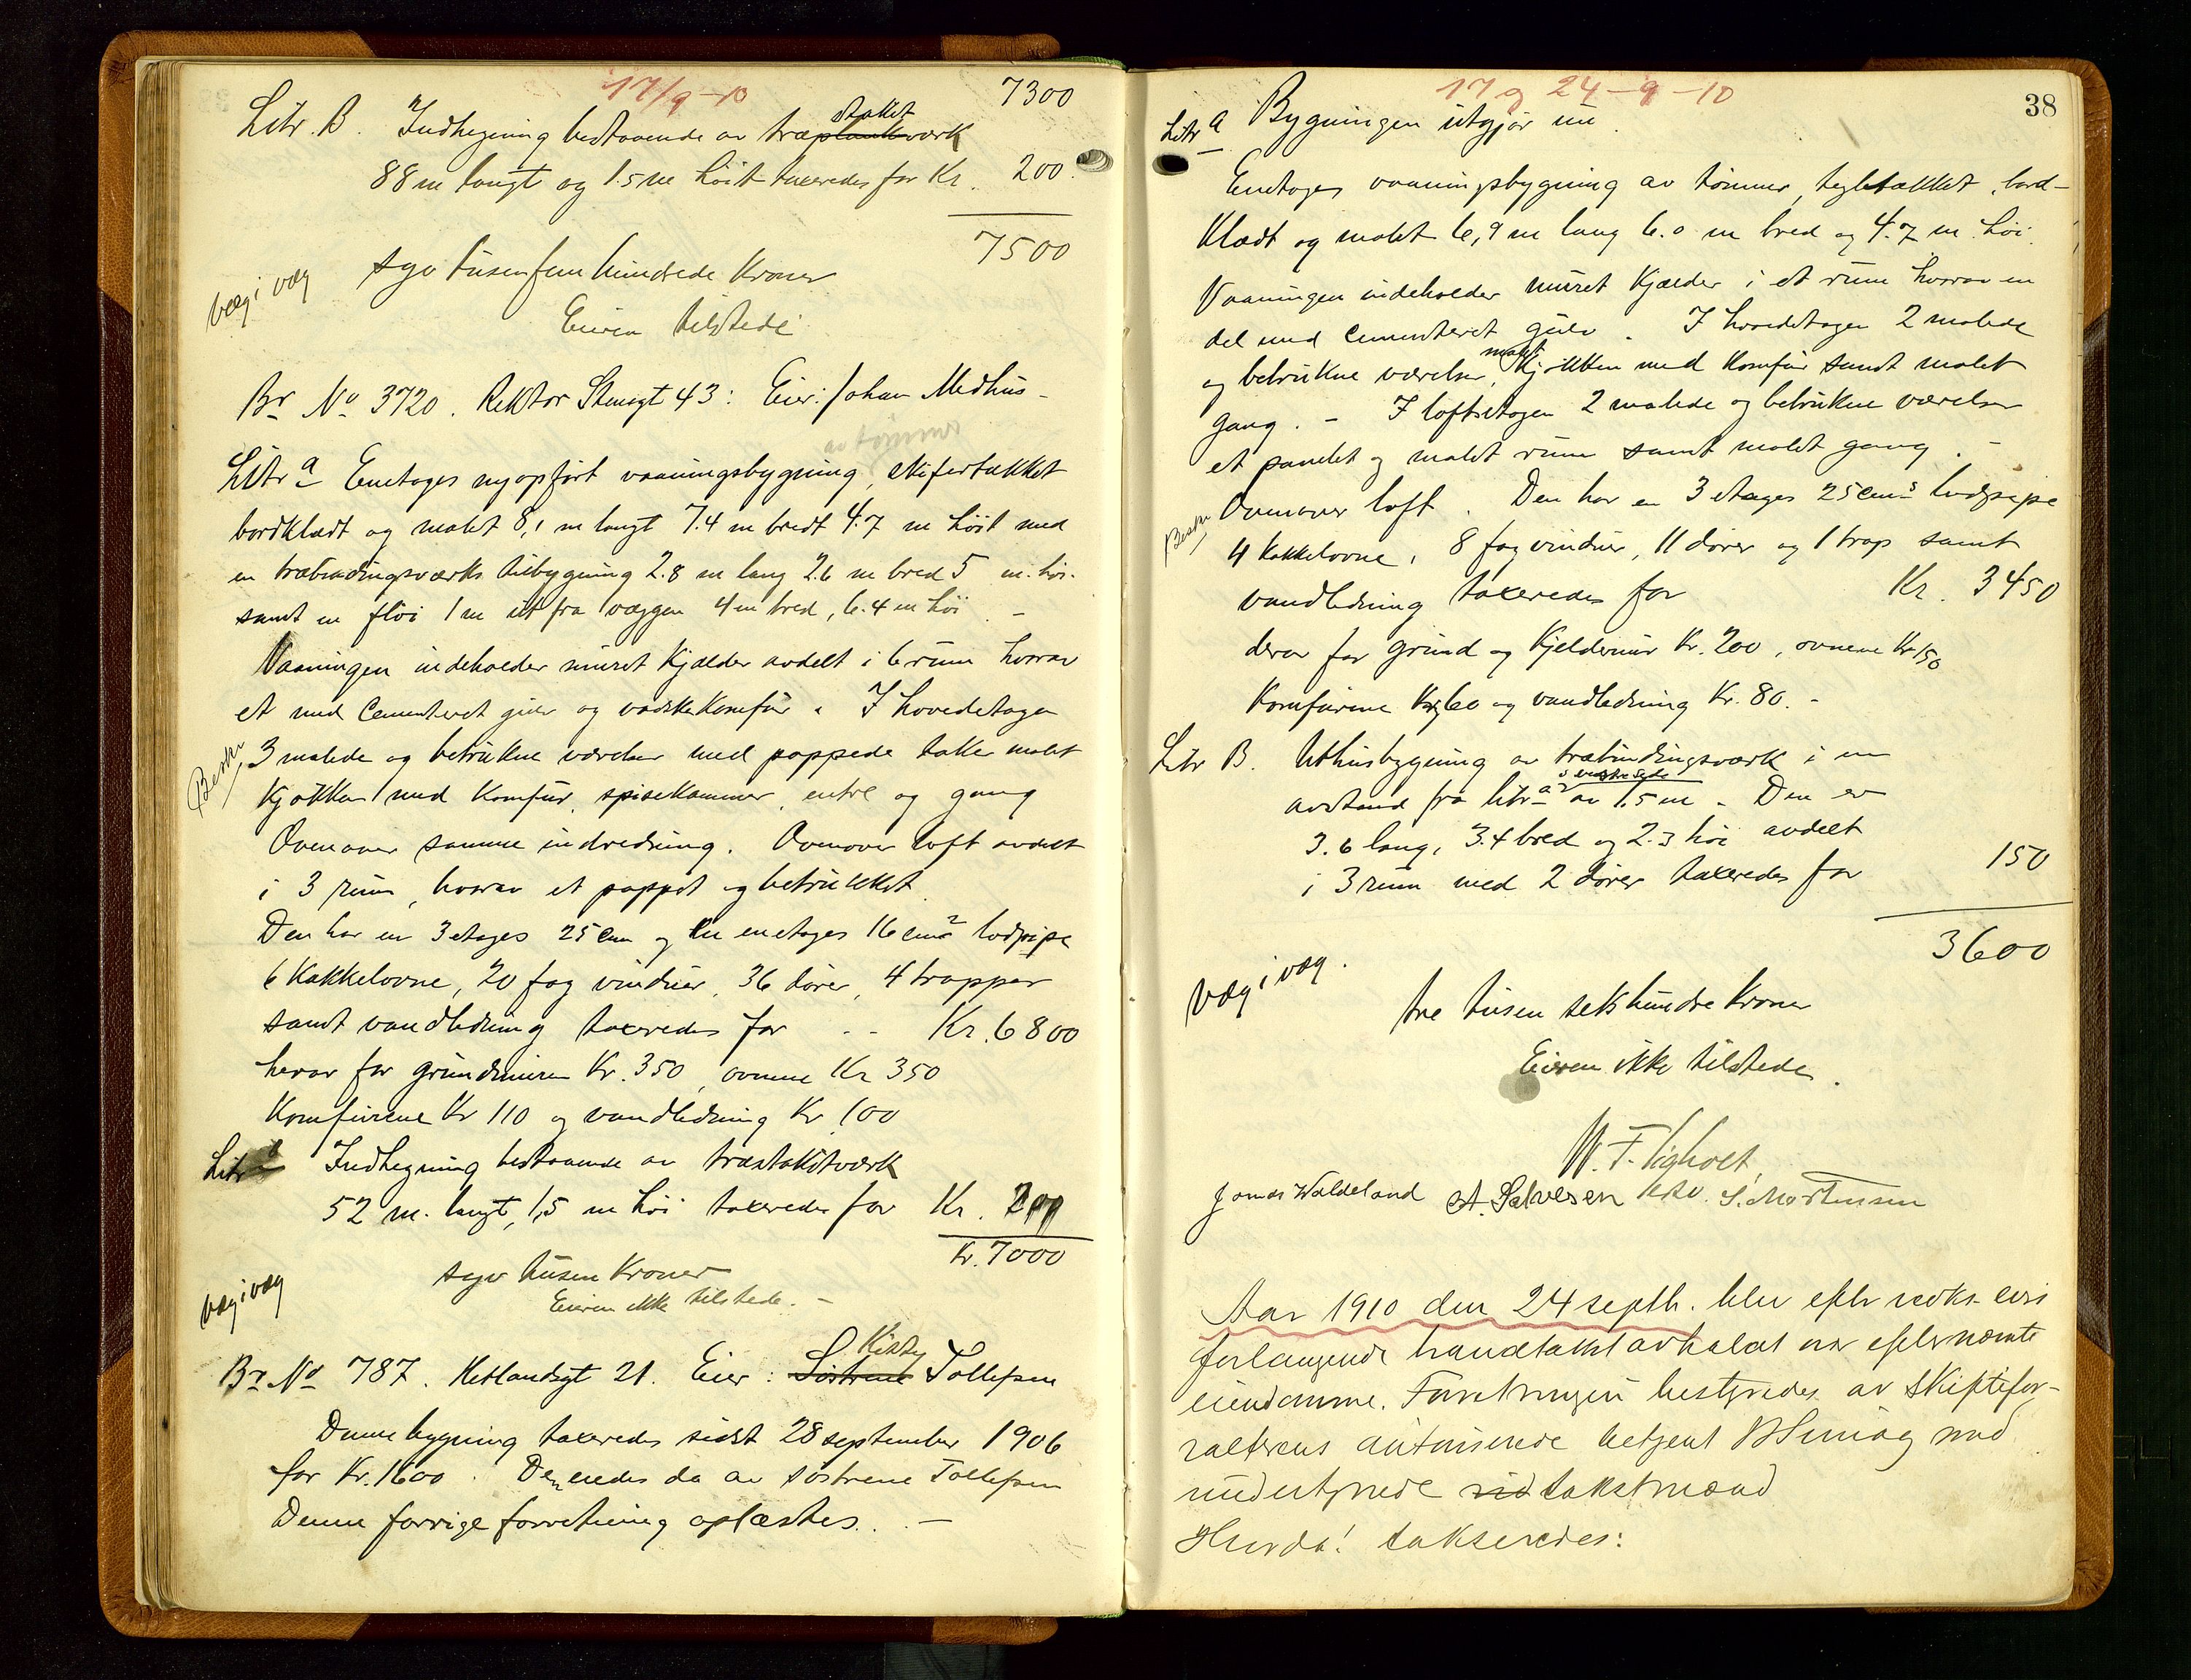 17/9-10
7300
Litr. B. Indhegning bestaaende av træplankverk staket
88 m langt og 1.5 m høit taxeredes for Kr. 200.
7500
væg i væg
syv tusen fem hundrede Kroner
Eieren tilstede
Br No 3720. Rektor Stensgt 43: Eier: Johan Medhus -
av tømmer
Litr a Enetages nyopført vaaningsbygning, skifertækket
bordklædt og malet 8,1 m langt 7.4 m bredt 4.7 m høit med
en træbindingsværks tilbygning 2.8 m lang 2.6 m bred 5 m. høi.
samt en fløi 1 m ut fra væggen 4 m bred, 6.4 m høi. -
Vaaningen indeholder muret Kjælder avdelt i 6 rum hvorav
et med cementeret gulv og vadskekomfur. I hovedetagen
Beskr
3 malede og betrukne værelser med pappede take malet
Kjøkken med Komfur, spisekammer, entre og gang
Ovenover samme indredning. Ovenover loft avdelt
i 3 rum, hvorav et pappet og betrukket
Den har en 3 etages 25 cm og en enetages 16 cm² lodpipe
6 Kakkelovne, 20 fag vinduer, 36 dører, 4 trapper
samt vandledning taxeredes for - - Kr. 6800
herav for grundmuren Kr. 350, ovnene Kr 350
Komfurene Kr 110 og vandledning Kr 100
Litr Indhegning bestaaende av træstaketværk
52 m. langt, 1,5 m høi taxeredes for Kr. 200
Kr. 7000
væg i væg
syv tusen Kroner
Eieren ikke tilstede. -
Br No 787. Hetlandsgt 21. Eier: Søstrene Kirsty Tollefsen
Denne bygning taxeredes sidst 28 september 1906
for Kr. 1600. Den eiedes da av søstrene Tollefsen
Denne forrige forretning oplæstes. -
17 og 24-9-10
38
Litr a Bygningen utgjør nu.
Enetages vaaningsbygning av tømmer, teglstækket, bord-
klædt og malet 6,9 m lang 6.0 m bred og 4.7 m. høi.
Vaaningen indeholder muret Kjælder i et rum hvorav en
del med cementeret gulv. I hovedetagen 2 malede
og betrukne værelser, malet Kjøkken med Komfur samt malet
gang. - I loftsetagen 2 malede og betrukne værelser
et panelet og malet rum samt malet gang. -
Beskr
Ovenover loft. Den har en 3 etages 25 cm² lodpipe
4 Kakkelovne, 8 fag vinduer, 11 dører og 1 trap samt
vandledning taxeredes for Kr. 3450
derav for grund og Kjeldermur Kr. 200, ovnene Kr 150
Komfurene Kr 60 og vandledning Kr. 80. -
Litr B. Uthusbygning av træbindingsværk i en
avstand fra litr a's østre side av 1,5 m. Den er
3.6 lang, 3.4 bred og 2.3 høi avdelt
i 3 rum med 2 dører taxeredes for 150
3600
væg i væg.
tre tusen sekshundre Kroner
Eieren ikke tilstede.
Jonas Waldeland A. Salvesen S. Mortensen
Aar 1910 den 24 septb. blev efter vedk. eiers
forlangende brandtakst avholdt over efternævnte
eiendomme. Forretningen bestyredes av Skiftefor-
valterens autoriserede betjent med
undertegnede vid takstmænd
Hvorda! takseredes: